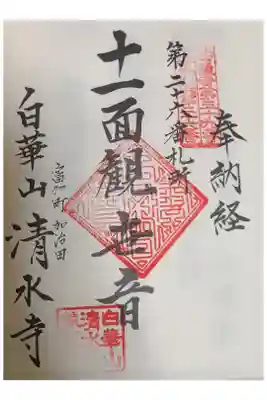 奉納経
第二十六番札所
十一面観世音
富加町 加治田
白華山 清水寺
白華
清水